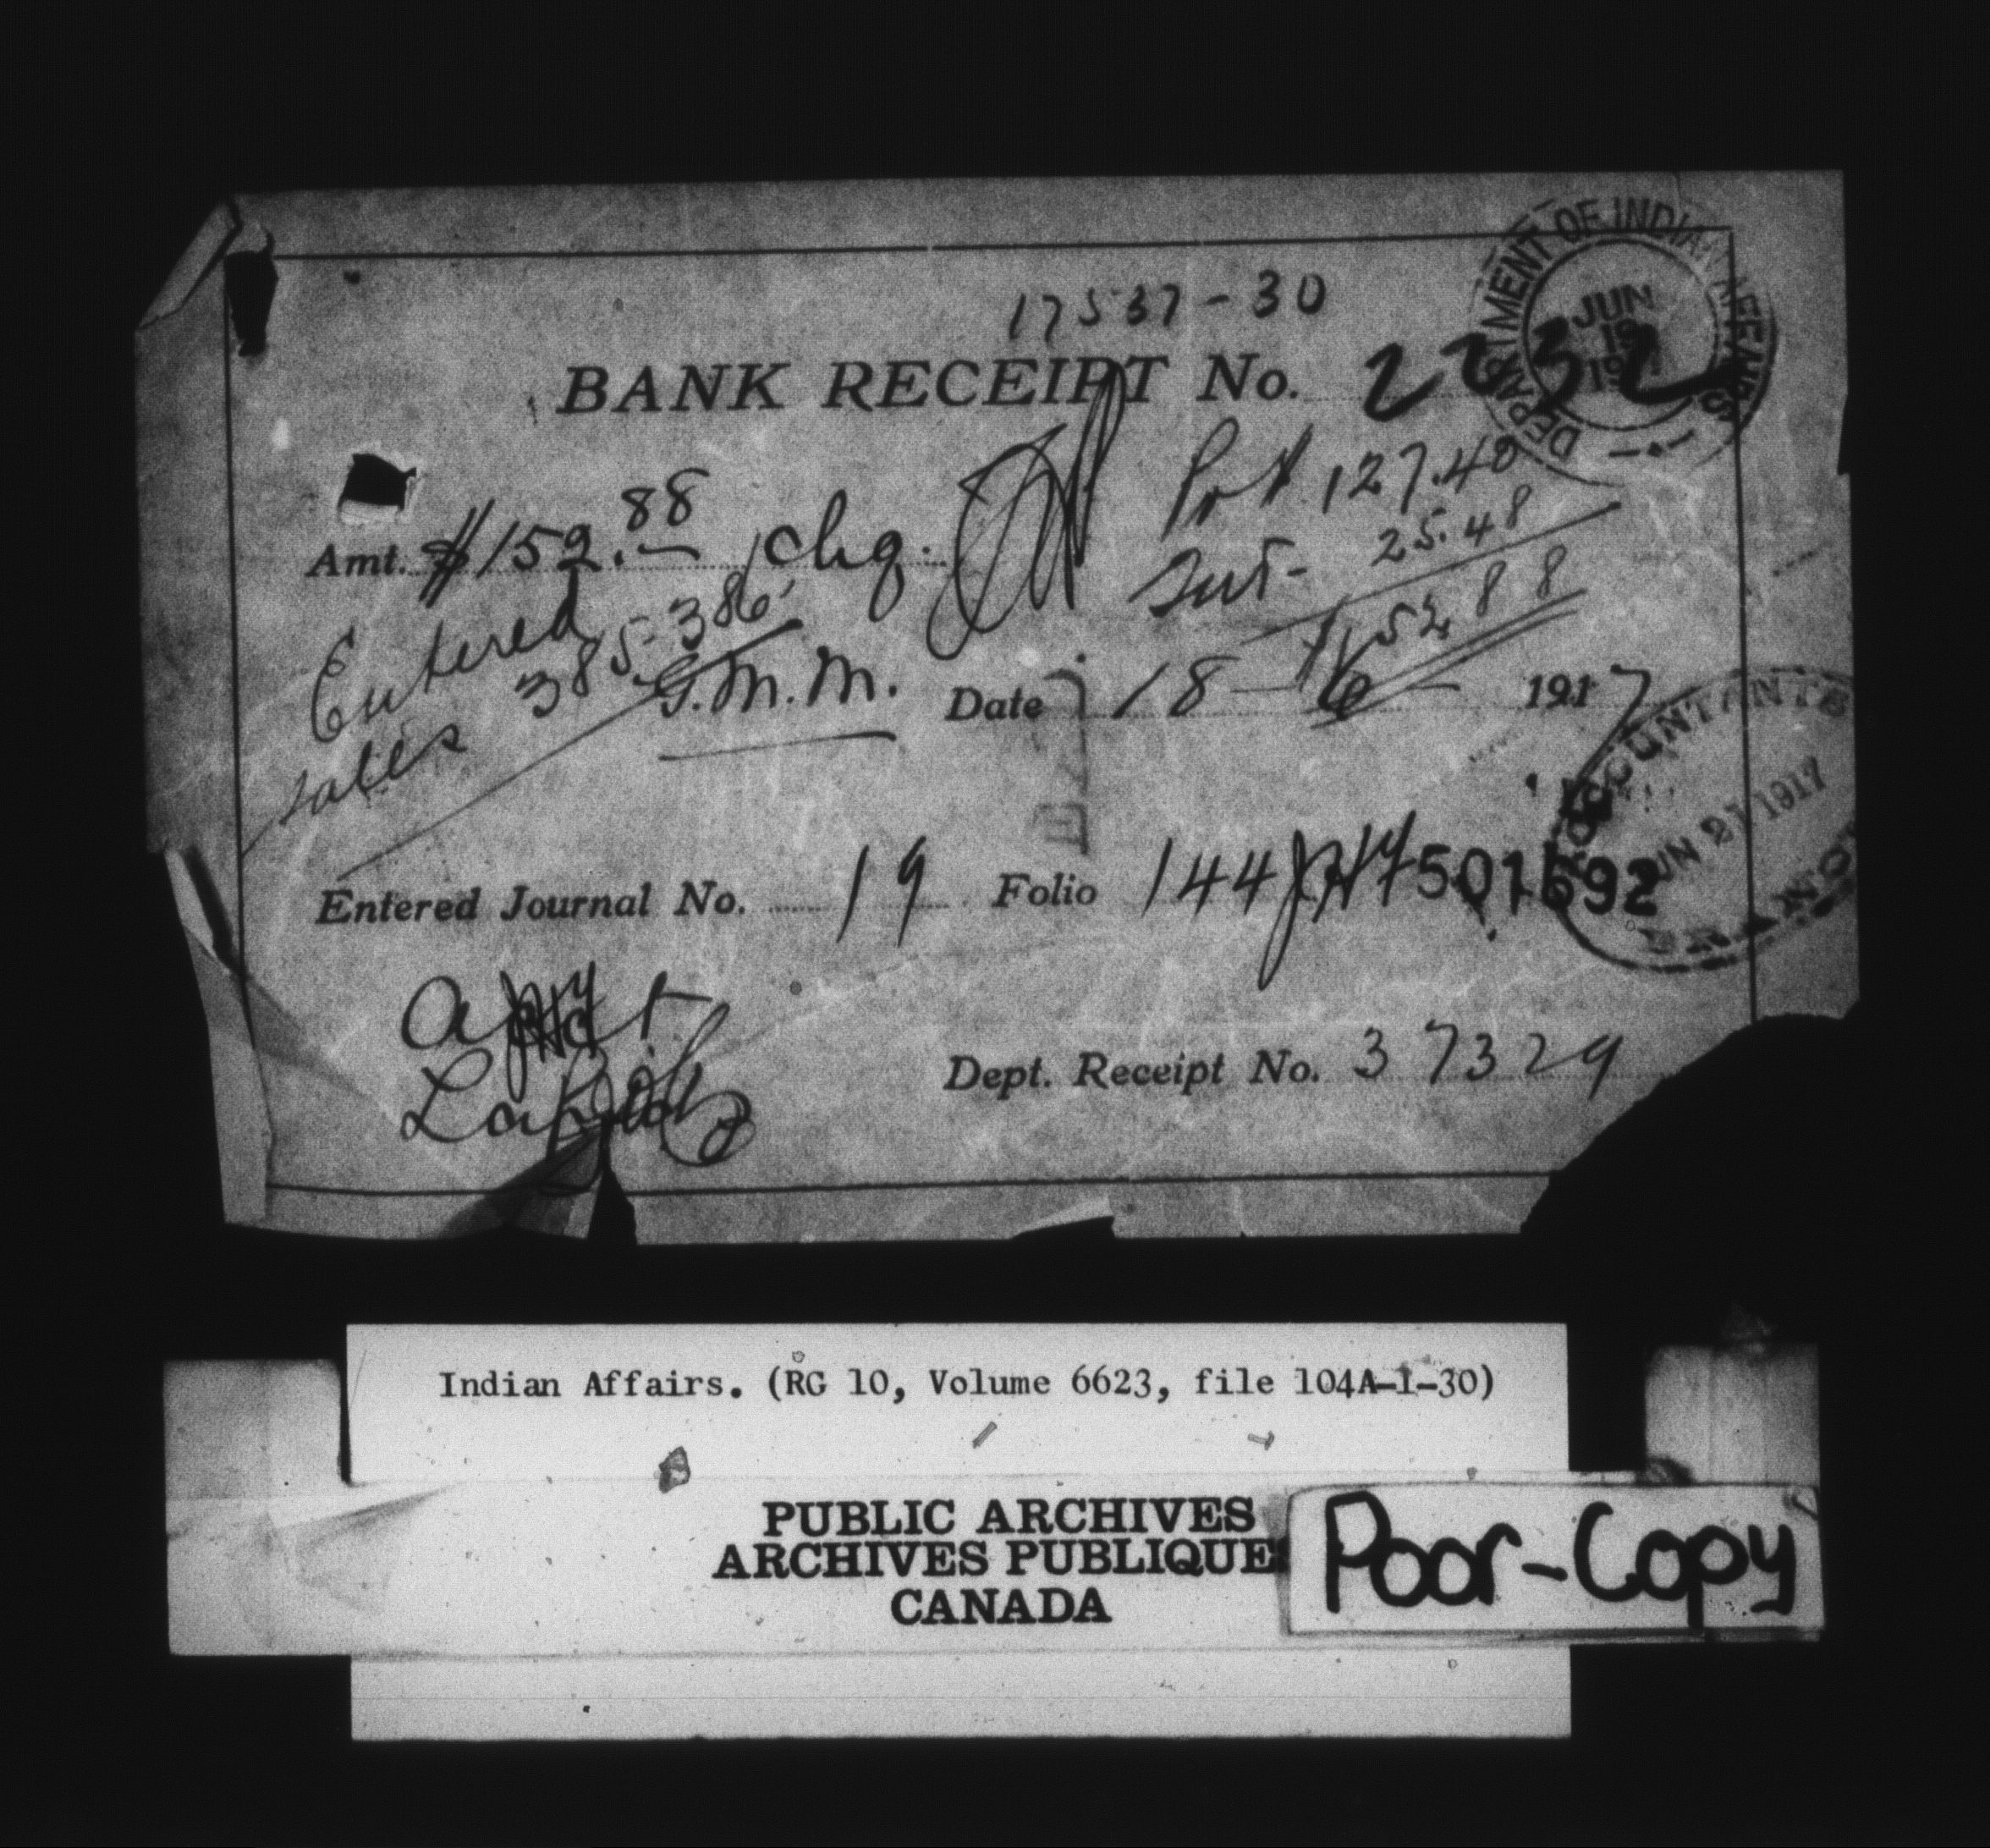 DEPARTMENT OF INDIAN AFFAIRS
JUN
19
17537-30
BANK RECEIPT No. 2232
127.40
Amt. $152.88 chq.
Int- 25.48
$152 88
Entered
Sales 385-386
G.M.M. Date 18-6- 1917
ACCOUNTANTS
JUN 21 1917
Entered Journal No. 19 Folio 144 501692
Dept. Receipt No. 37329
Indian Affairs. (RG 10, Volume 6623, file 104A-1-30)
PUBLIC ARCHIVES
ARCHIVES PUBLIQUE
CANADA
Poor-Copy